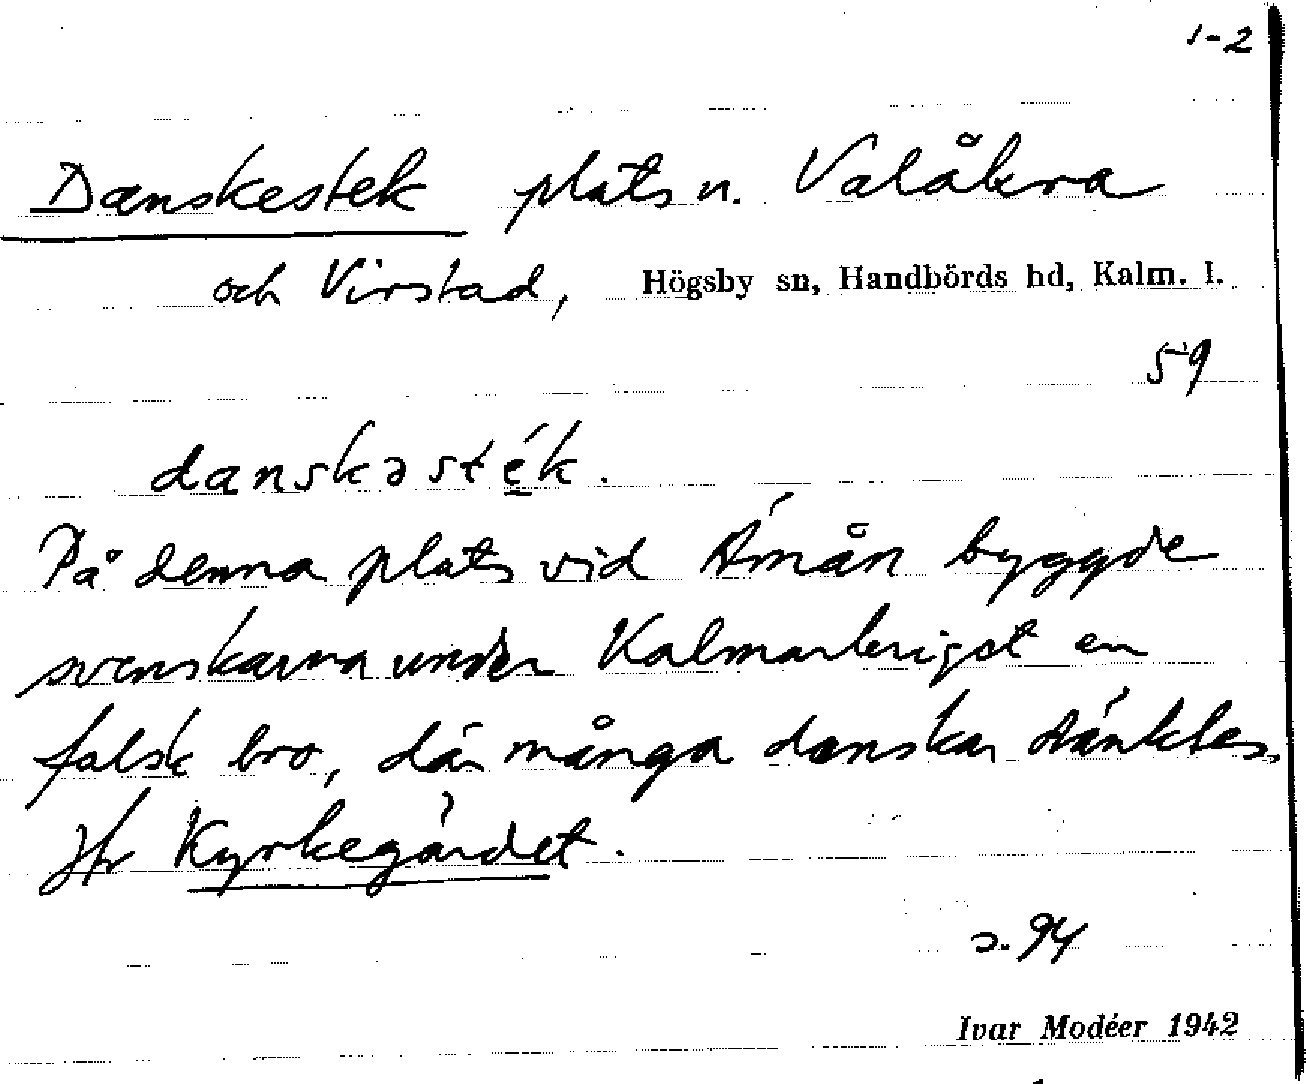 1-2
Danskestek plats n. Valåkra
och Virstad, Högsby sn, Handbörds hd, Kalm. l.
59
danskəsték.
På denna plats vid Åmån byggde
svenskarna under Kalmarkriget en
falsk bro, där många danskar dränktes.
Jfr Kyrkegårdet.
s. 94
Ivar Modéer 1942